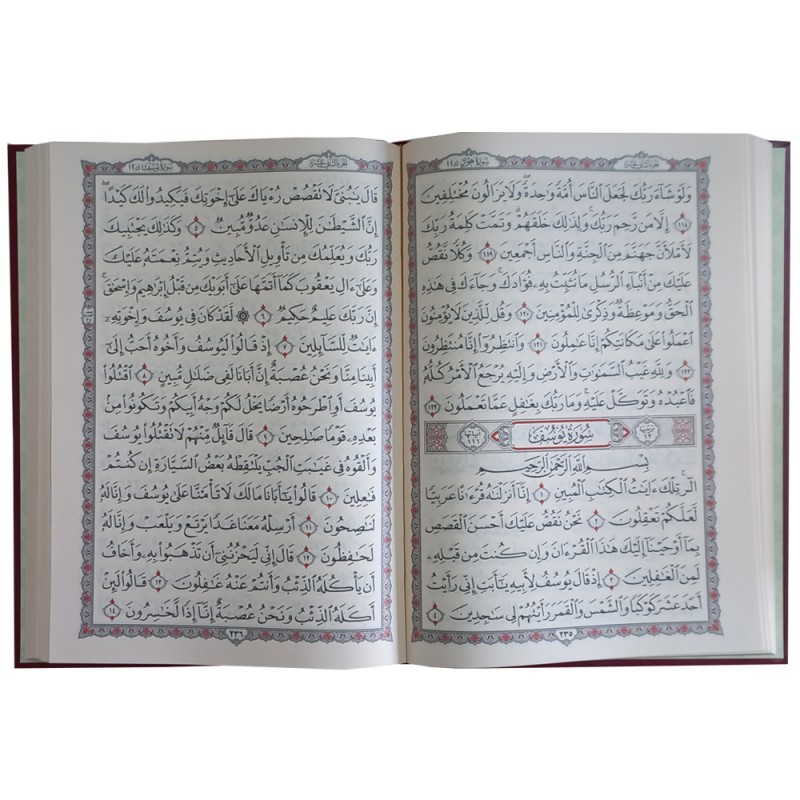 سورة هود ١١
الجزء الثاني عشر
وَلَوْ شَآءَ رَبُّكَ لَجَعَلَ ٱلنَّاسَ أُمَّةً وَٰحِدَةً ۖ وَلَا يَزَالُونَ مُخْتَلِفِينَ
﴿١١٨﴾ إِلَّا مَن رَّحِمَ رَبُّكَ ۚ وَلِذَٰلِكَ خَلَقَهُمْ ۗ وَتَمَّتْ كَلِمَةُ رَبِّكَ
لَأَمْلَأَنَّ جَهَنَّمَ مِنَ ٱلْجِنَّةِ وَٱلنَّاسِ أَجْمَعِينَ ﴿١١٩﴾ وَكُلًّا نَّقُصُّ
عَلَيْكَ مِنْ أَنۢبَآءِ ٱلرُّسُلِ مَا نُثَبِّتُ بِهِۦ فُؤَادَكَ ۚ وَجَآءَكَ فِى هَٰذِهِ
ٱلْحَقُّ وَمَوْعِظَةٌ وَذِكْرَىٰ لِلْمُؤْمِنِينَ ﴿١٢٠﴾ وَقُل لِّلَّذِينَ لَا يُؤْمِنُونَ
ٱعْمَلُوا۟ عَلَىٰ مَكَانَتِكُمْ إِنَّا عَٰمِلُونَ ﴿١٢١﴾ وَٱنتَظِرُوٓا۟ إِنَّا مُنتَظِرُونَ
﴿١٢٢﴾ وَلِلَّهِ غَيْبُ ٱلسَّمَٰوَٰتِ وَٱلْأَرْضِ وَإِلَيْهِ يُرْجَعُ ٱلْأَمْرُ كُلُّهُۥ
فَٱعْبُدْهُ وَتَوَكَّلْ عَلَيْهِ ۚ وَمَا رَبُّكَ بِغَٰفِلٍ عَمَّا تَعْمَلُونَ ﴿١٢٣﴾
سُورَةُ يُوسُفَ
بِسْمِ ٱللَّهِ ٱلرَّحْمَٰنِ ٱلرَّحِيمِ
الٓر ۚ تِلْكَ ءَايَٰتُ ٱلْكِتَٰبِ ٱلْمُبِينِ ﴿١﴾ إِنَّآ أَنزَلْنَٰهُ قُرْءَٰنًا عَرَبِيًّا
لَّعَلَّكُمْ تَعْقِلُونَ ﴿٢﴾ نَحْنُ نَقُصُّ عَلَيْكَ أَحْسَنَ ٱلْقَصَصِ
بِمَآ أَوْحَيْنَآ إِلَيْكَ هَٰذَا ٱلْقُرْءَانَ وَإِن كُنتَ مِن قَبْلِهِۦ
لَمِنَ ٱلْغَٰفِلِينَ ﴿٣﴾ إِذْ قَالَ يُوسُفُ لِأَبِيهِ يَٰٓأَبَتِ إِنِّى رَأَيْتُ
أَحَدَ عَشَرَ كَوْكَبًا وَٱلشَّمْسَ وَٱلْقَمَرَ رَأَيْتُهُمْ لِى سَٰجِدِينَ ﴿٤﴾
٢٣٥
سورة يوسف ١٢
الجزء الثاني عشر
قَالَ يَٰبُنَىَّ لَا تَقْصُصْ رُءْيَاكَ عَلَىٰٓ إِخْوَتِكَ فَيَكِيدُوا۟ لَكَ كَيْدًا ۖ
إِنَّ ٱلشَّيْطَٰنَ لِلْإِنسَٰنِ عَدُوٌّ مُّبِينٌ ﴿٥﴾ وَكَذَٰلِكَ يَجْتَبِيكَ
رَبُّكَ وَيُعَلِّمُكَ مِن تَأْوِيلِ ٱلْأَحَادِيثِ وَيُتِمُّ نِعْمَتَهُۥ عَلَيْكَ
وَعَلَىٰٓ ءَالِ يَعْقُوبَ كَمَآ أَتَمَّهَا عَلَىٰٓ أَبَوَيْكَ مِن قَبْلُ إِبْرَٰهِيمَ وَإِسْحَٰقَ ۚ
إِنَّ رَبَّكَ عَلِيمٌ حَكِيمٌ ﴿٦﴾ ۞ لَّقَدْ كَانَ فِى يُوسُفَ وَإِخْوَتِهِۦٓ
ءَايَٰتٌ لِّلسَّآئِلِينَ ﴿٧﴾ إِذْ قَالُوا۟ لَيُوسُفُ وَأَخُوهُ أَحَبُّ إِلَىٰٓ
أَبِينَا مِنَّا وَنَحْنُ عُصْبَةٌ إِنَّ أَبَانَا لَفِى ضَلَٰلٍ مُّبِينٍ ﴿٨﴾ ٱقْتُلُوا۟
يُوسُفَ أَوِ ٱطْرَحُوهُ أَرْضًا يَخْلُ لَكُمْ وَجْهُ أَبِيكُمْ وَتَكُونُوا۟ مِنۢ
بَعْدِهِۦ قَوْمًا صَٰلِحِينَ ﴿٩﴾ قَالَ قَآئِلٌ مِّنْهُمْ لَا تَقْتُلُوا۟ يُوسُفَ
وَأَلْقُوهُ فِى غَيَٰبَتِ ٱلْجُبِّ يَلْتَقِطْهُ بَعْضُ ٱلسَّيَّارَةِ إِن كُنتُمْ
فَٰعِلِينَ ﴿١٠﴾ قَالُوا۟ يَٰٓأَبَانَا مَا لَكَ لَا تَأْمَ۫نَّا عَلَىٰ يُوسُفَ وَإِنَّا لَهُۥ
لَنَٰصِحُونَ ﴿١١﴾ أَرْسِلْهُ مَعَنَا غَدًا يَرْتَعْ وَيَلْعَبْ وَإِنَّا لَهُۥ
لَحَٰفِظُونَ ﴿١٢﴾ قَالَ إِنِّى لَيَحْزُنُنِىٓ أَن تَذْهَبُوا۟ بِهِۦ وَأَخَافُ
أَن يَأْكُلَهُ ٱلذِّئْبُ وَأَنتُمْ عَنْهُ غَٰفِلُونَ ﴿١٣﴾ قَالُوا۟ لَئِنْ
أَكَلَهُ ٱلذِّئْبُ وَنَحْنُ عُصْبَةٌ إِنَّآ إِذًا لَّخَٰسِرُونَ ﴿١٤﴾
٢٣٦